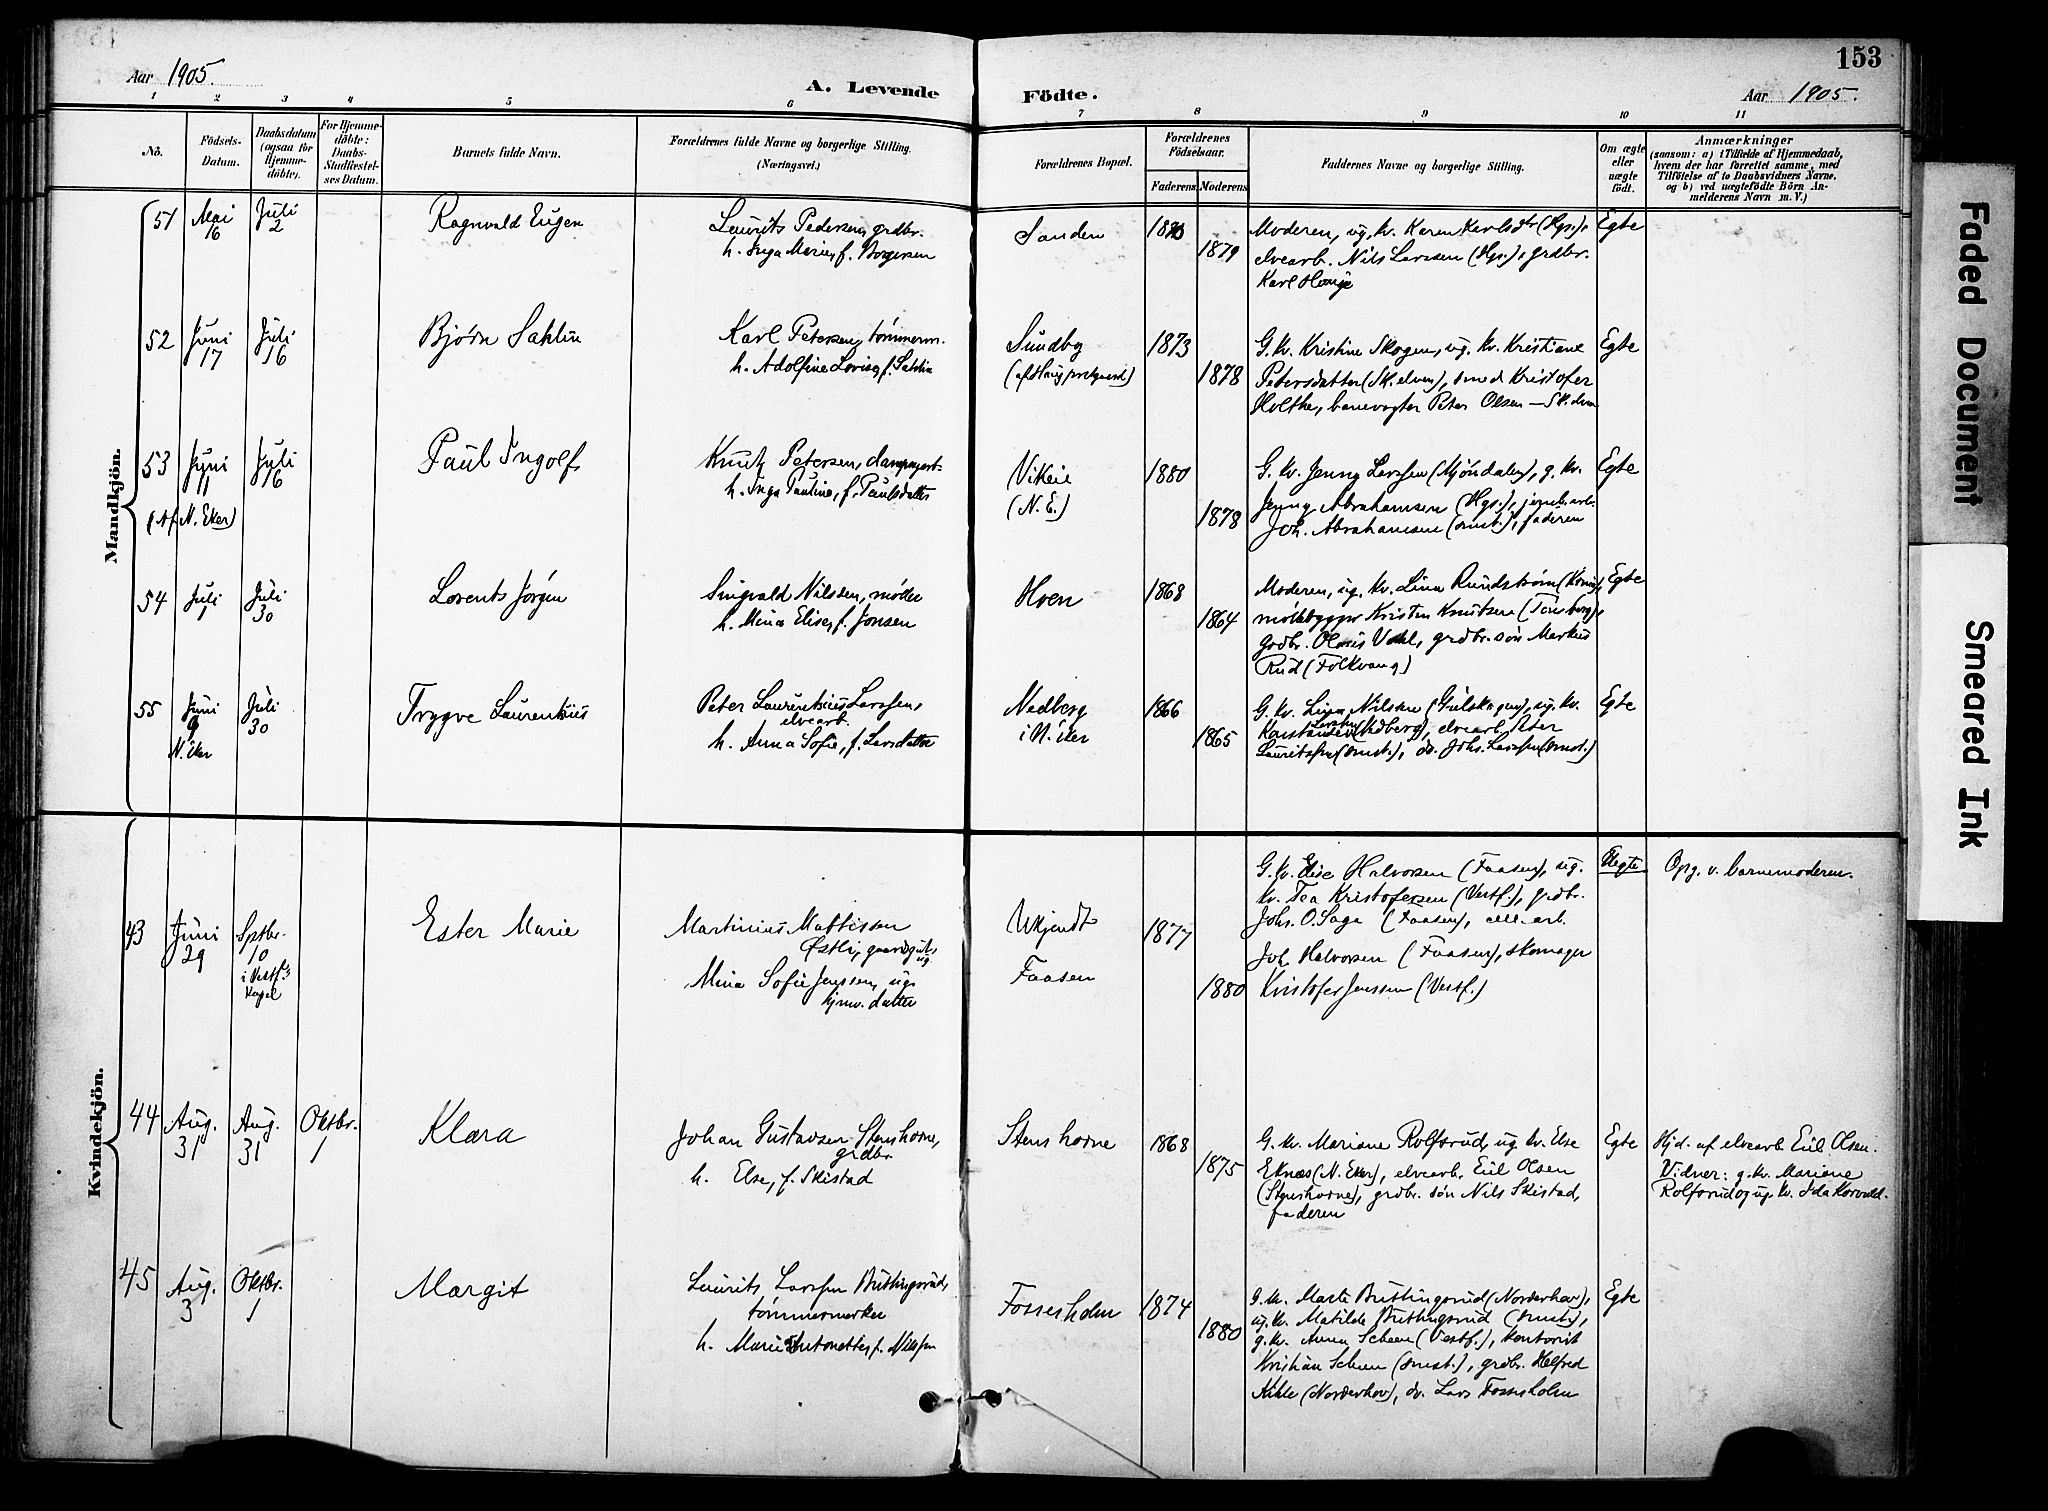 153
Aar 1905.
A. Levende Födte.
Aar 1905.
1 2 3 4 5 6 7 8 9 10 11
No.
Födsels-
Datum.
Daabsdatum
(ogsaa for
Hjemme-
döbte).
For Hjemme-
döbte:
Daabs-
Stadfæstel-
ses Datum.
Barnets fulde Navn.
Forældrenes fulde Navne og borgerlige Stilling.
(Næringsvei.)
Forældrenes Bopæl.
Forældrenes
Födselsaar.
Faderens Moderens
Faddernes Navne og borgerlige Stilling.
Om ægte
eller
uægte
födt.
Anmærkninger
(saasom: a) i Tilfælde af Hjemmedaab,
hvem der har forrettet samme, med
Tilföielse af to Daabsvidners Navne,
og b) ved uægtefödte Börn An-
melderens Navn m. V.)
Mandkjön.
51 Mai 16 Juli 2
Ragnvald Eugen
Laurits Pedersen, grdbr.
h. Inga Marie, f. Borgersen
Sanden
1879
Moderen, ug. kv. Karen Karlsdtr (Hgs.),
elvearb. Nils Larssen (Hgs.), grdbr.
Karl Hauge
Egte
52 Juni 17 Juli 16
Bjørn Sahlin
Karl Petersen, tømmerm.
h. Adolfine Lovise, f. Sahlin
Sundby
1873
1878
G. kv. Kristine Skogen, ug. kv. Kristiane
Petersdatter (Sk.elven), smed Kristofer
Holthe, banevogter Peter Olsen – Sk.elven
Egte
53 Juni 11 Juli 16
(Af N. Eker)
Paul Ingolf
Knut Petersen,
h. Inga Pauline, f. Paulsdatter
Vikeie
(N. E.)
1880
1878
G. kv. Jenny Larssen (Mjøndalen), g. kv.
Jenny Abrahamsen (Hgs.), jernb.arb.
Joh. Abrahamsen (smst.), faderen
Egte
54 Juli 1 Juli 30
Lorents Jørgen
Sigvald Nilssen, møller
h. Mina Elise, f. Jonsen
Hoen
1868
1864
Moderen, ug. kv. Lina Rundstrøm
møllebygger Kristen Knutsen
grdbr. Vahl, grdbr. søn Markus
Rud (Folkvang)
Egte
55 Juni 9 Juli 30
N. Eker
Trygve Laurentius
Peter Laurentius Larssen,
elvearb.
h. Anna Sofie, f. Larsdatter
Nedberg
i N. Eker
1866
1865
G. kv. Lina Nilssen (Gulskogen), ug. kv.
Larssen
Konstanse (Nedberg), elvearb. Peter
Lauritssen (smst.), do. Johs. Larssen (smst.)
Egte
Kvindekjön.
43 Juni 29 Sptbr. 10
i Vestf.s
Kapel
Ester Marie
Martinius Mattissen
Østli, gaardgut, og
Mina Sofie Jenssen, ug.
tjmv. datter
Ukjendt
Faasen
1877
1880
G. kv. Elise Halvorsen (Faasen), ug.
kv. Tea Kristofersen (Vestf.), grdbr.
Johs. O. Saga (Faasen), cell. arb.
Joh. Halvorsen (Faasen), skomager
Kristofer Jenssen (Vestf.)
Uegte
Opg. v. barnemoderen.
44 Aug. 31 Aug. 31 Oktbr. 1
Klara
Johan Gustavsen Stenshorne,
grdbr.
h. Else, f. Skistad
Stenshorne
1868
1875
G. kv. Mariane Rolfsrud, ug. kv. Else
Eknæs (N. Eker), elvearb. Eiil Olsen
(Stenshorne), grdbr. søn Nils Skistad,
faderen
Egte
Hjd. af elvearb. Eiil Olsen.
Vidner: g. kv. Mariane
Rolfsrud og ug. kv. Ida Korvald.
45 Aug. 3 Oktbr. 1
Margit
Laurits Larssen Buttingsrud,
tømmermerker
h. Marie Antonette, f. Nilssen
Fossesholm
1874
1880
G. kv. Marte Buttingsrud (Norderhov),
ug. kv. Matilde Buttingsrud (smst.),
g. kv. Anna Scheen (Vestf.), kontorist
Kristian Scheen (smst.), grdbr. Helfred
Kihle (Norderhov), do. Lars Fossesholm
Egte
Faded Document
Smeared Ink